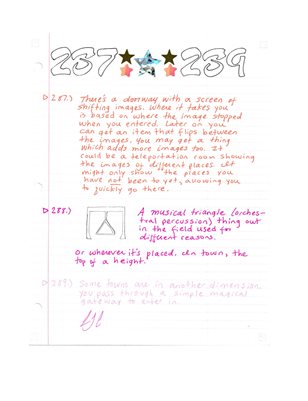 287 289
287.) There's a doorway with a screen of
shifting images. Where it takes you
is based on where the image stopped
when you entered. Later on you
can get an item that flips between
the images. You may get a thing
which adds more images too. It
could be a teleportation room showing
the images of different places. It
might only show the places you
have not been to yet, allowing you
to quickly go there.
288.) A musical triangle (orches-
tral percussion) thing out
in the field used for
different reasons.
Or wherever it's placed. In town, the
top of a height.
289.) Some towns are in another dimension.
you pass through a simple magical
gateway to enter in.